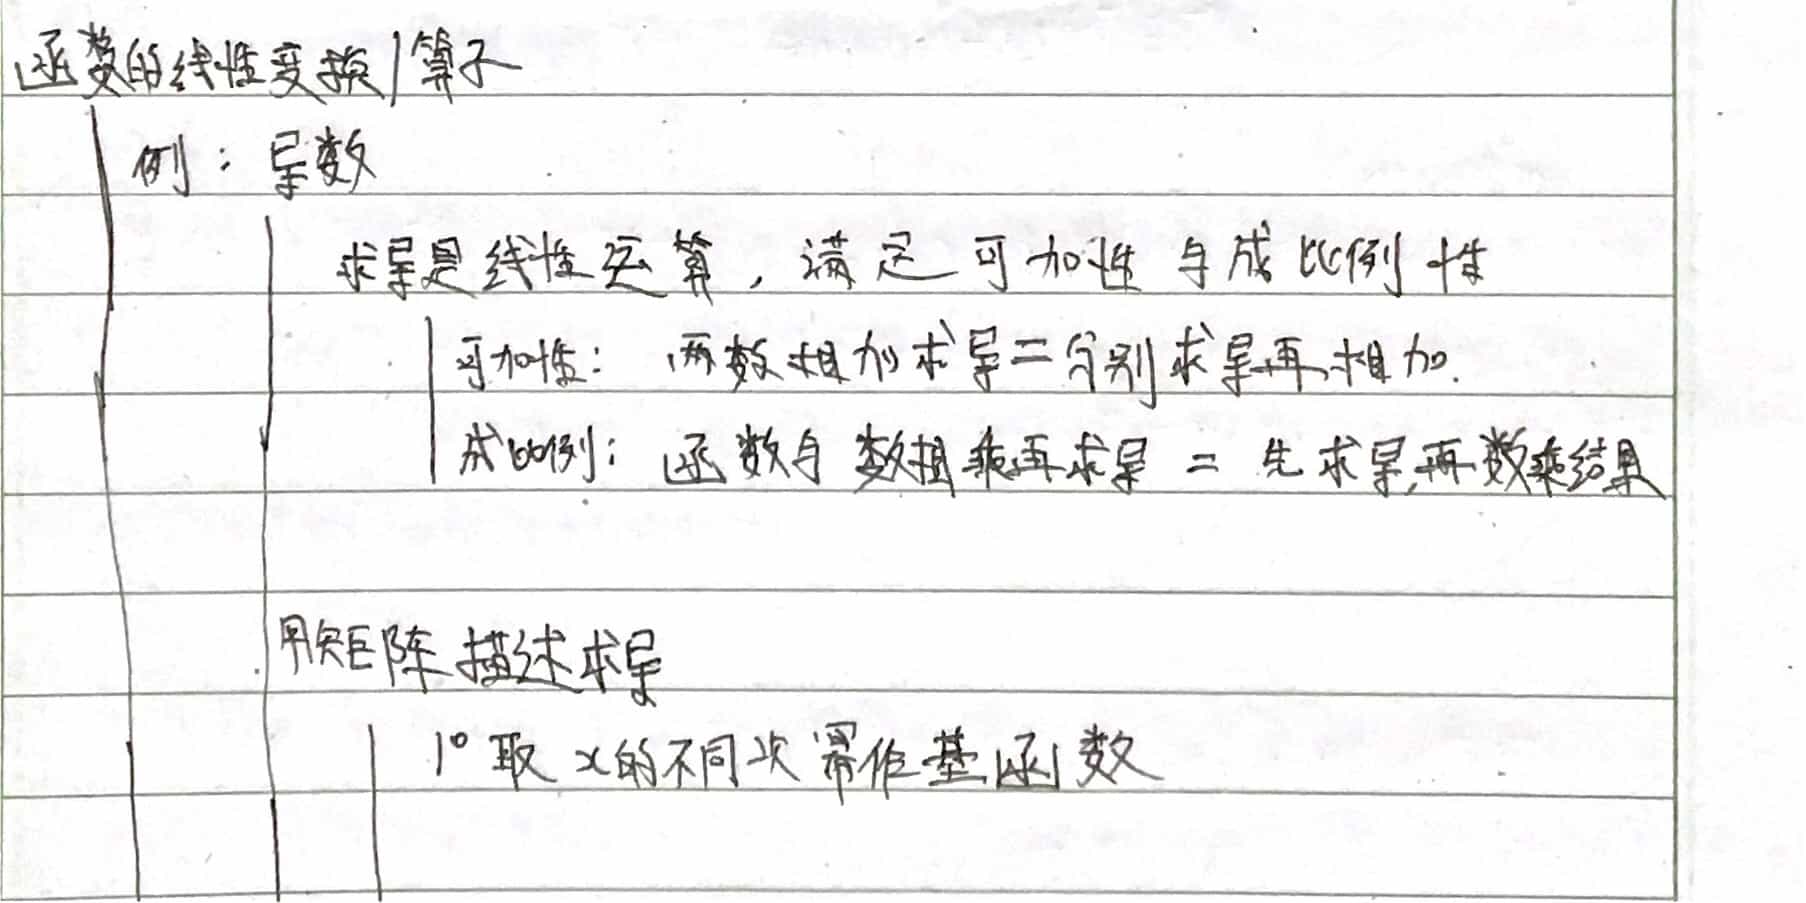 函数的线性变换/算子
例：导数
求导是线性运算，满足可加性与成比例性
可加性：两数相加求导=分别求导再相加.
成比例：函数与数相乘再求导 = 先求导,再数乘结果
用矩阵描述求导
1° 取x的不同次幂作基函数